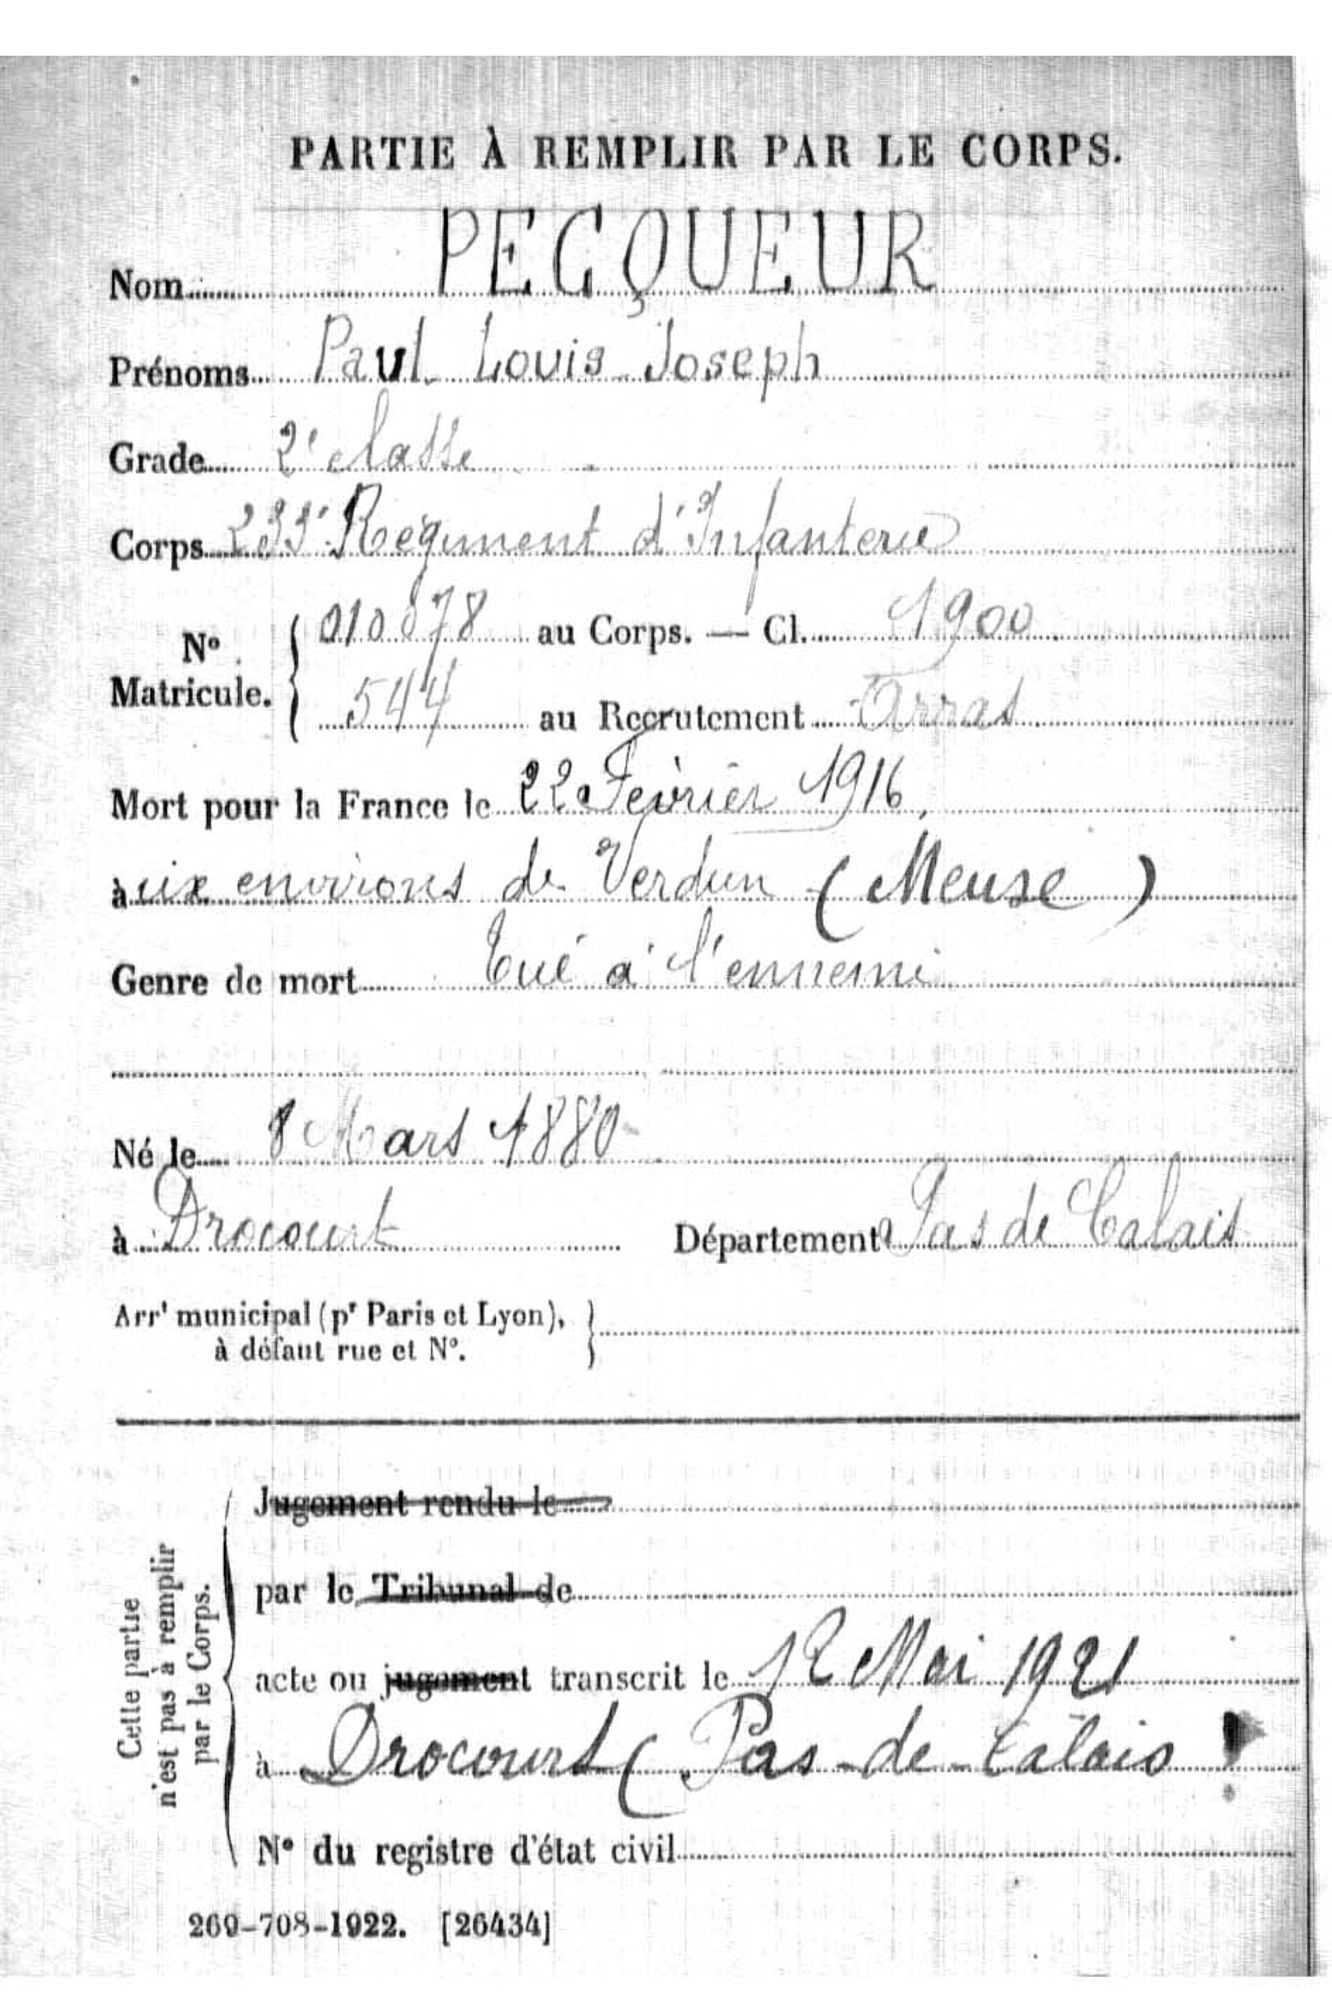 PARTIE À REMPLIR PAR LE CORPS.
Nom PECQUEUR
Prénoms Paul Louis Joseph
Grade 2e classe
Corps 233e Régiment d'Infanterie
No Matricule. { 010078 au Corps. — Cl. 1900
544 au Recrutement Arras
Mort pour la France le 22 Février 1916
aux environs de Verdun (Meuse)
Genre de mort Tué à l'ennemi
Né le 8 Mars 1880
à Drocourt Département Pas de Calais
Arrt municipal (pr Paris et Lyon), }
à défaut rue et N°.
Cette partie
n'est pas à remplir
par le Corps.
Jugement rendu le
par le Tribunal de
acte ou jugement transcrit le 12 Mai 1921
à Drocourt (Pas-de-Calais)
N° du registre d'état civil
269-708-1922. [26434]